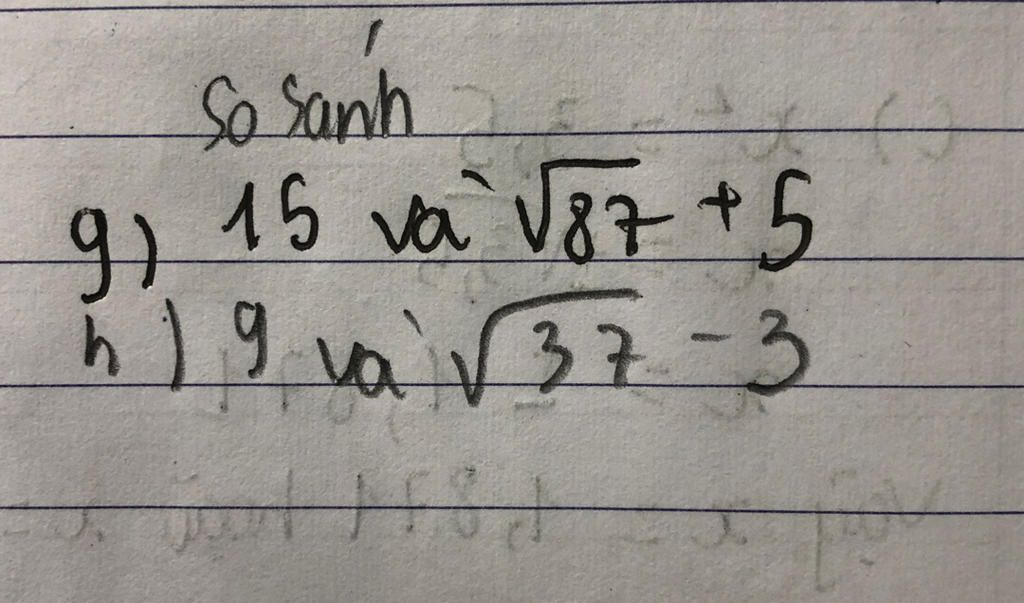 So sánh
g) 15 và √87 + 5
h) 9 và √37 - 3